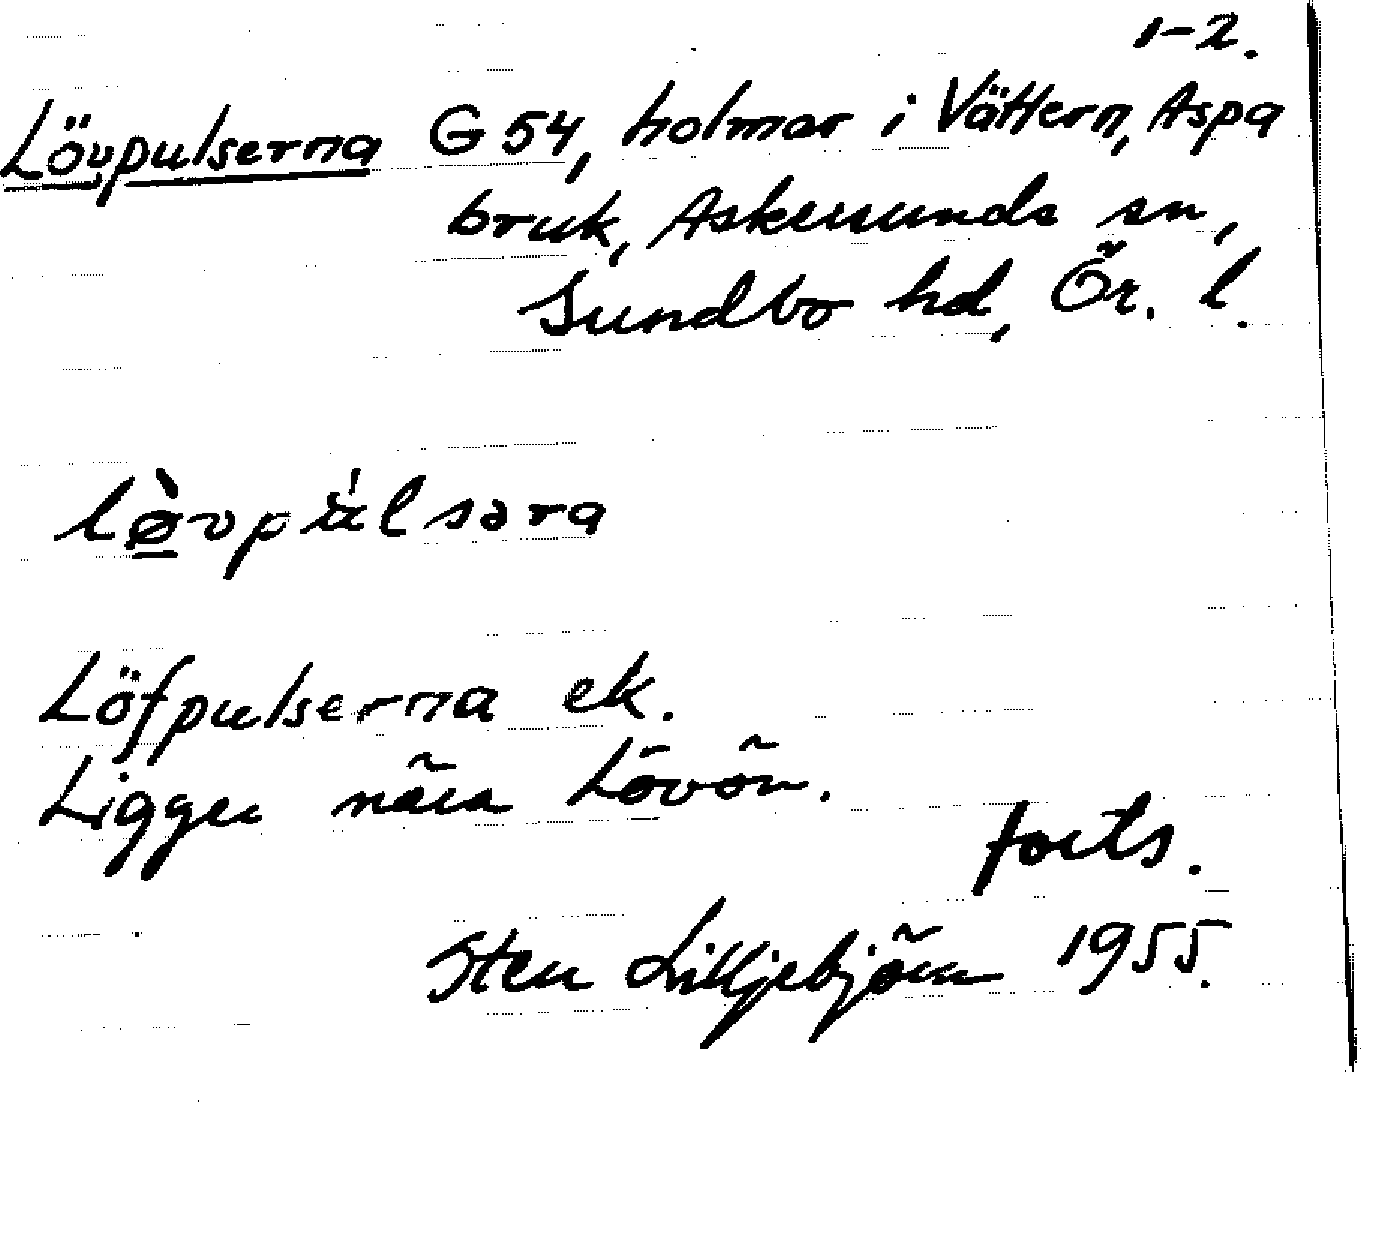 1-2.
Lövpulserna G 54, holmar i Vättern, Aspa
bruk, Askersunds sn,
Sundbo hd, Ör. l.
lø̀vpúlsəra
Löfpulserna ek.
Ligger nära Lövön.
forts.
Sten Lilljebjörn 1955.